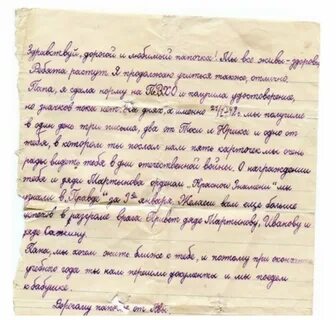 Здравствуй, дорогой и любимый папочка! Мы все живы-здоровы
Ребята растут. Я продолжаю учиться также, отлично
Папа, я сдала норму на ПВХО и получила удостоверение,
но значков пока нет. На днях, а именно мы получили
в один день три письма, два от Таси и Юрика и одно от
тебя, в котором ты послал нам пять карточек. Мы очень
рады видеть тебя в дни отечественной войны. О награждении
тебя и дяди Мартынова орденом "Красное Знамени" мы
узнали в "Правде" за января. Желаем вам еще больше
успехов в разгроме врага. Привет дяде Мартынову, Иванову и
дяде Сажину.
Папа, мы хотим жить ближе к тебе, и потому при окончании
учебного года ты нам перешли документы и мы поедем
к бабушке.
Дорогому папочке от